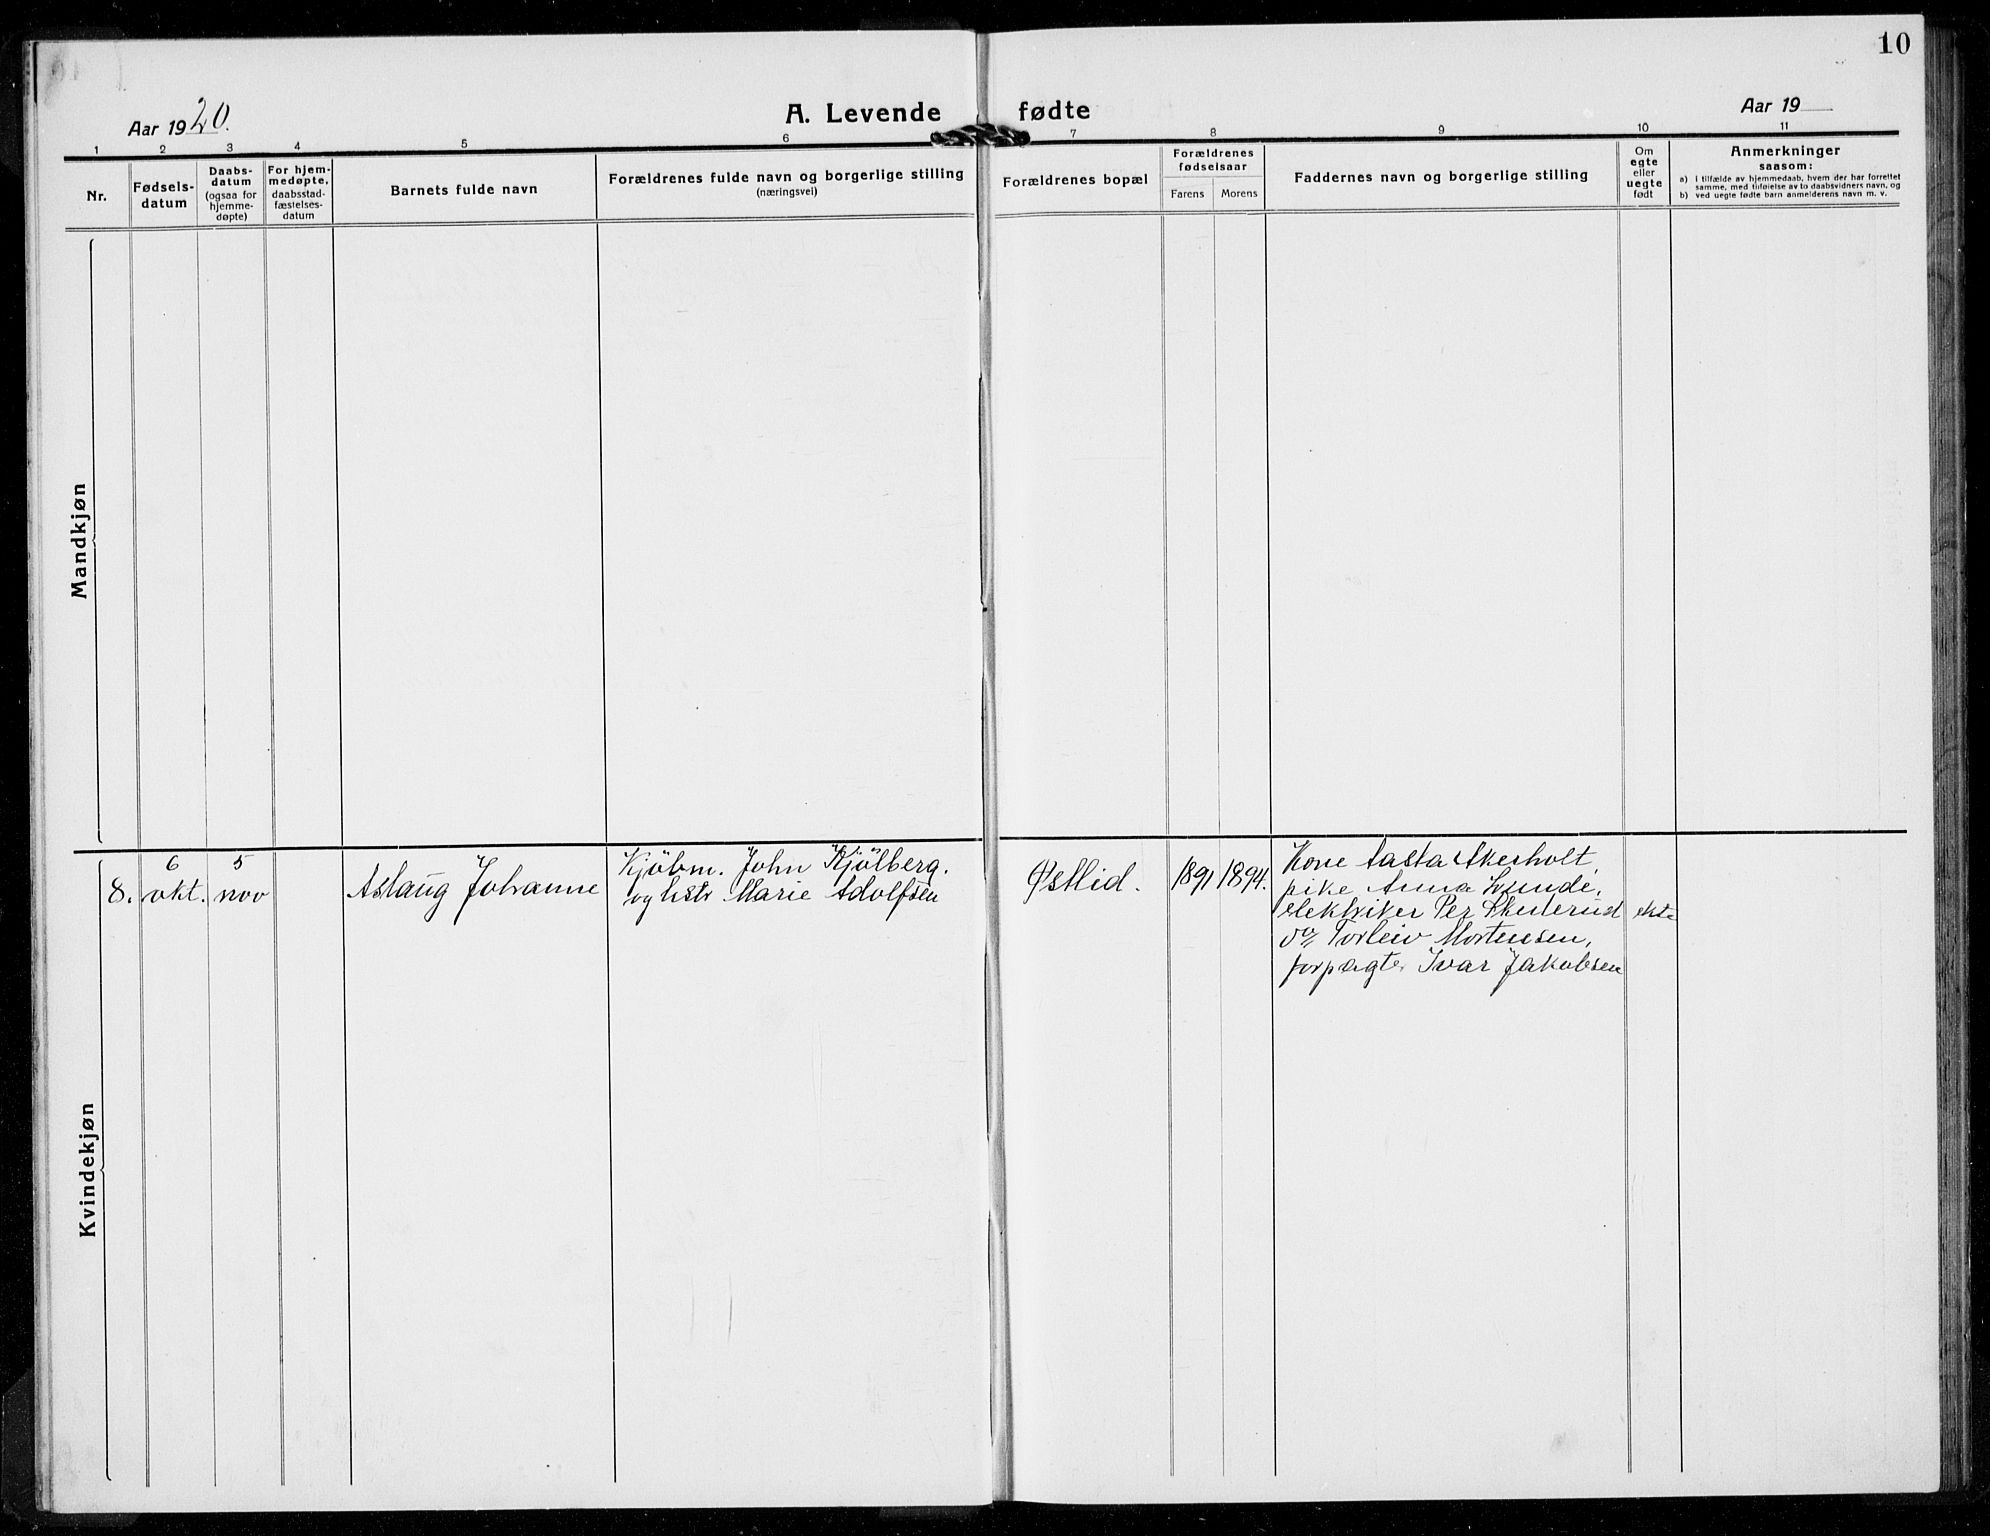 10
Aar 1920.
A. Levende fødte
Aar 19
1 2 3 4 5 6 7 8 9 10 11
Nr.
Fødsels-
datum
Daabs-
datum
(ogsaa for
hjemme-
døpte)
For hjem-
medøpte,
daabsstad-
fæstelses-
datum
Barnets fulde navn
Forældrenes fulde navn og borgerlige stilling
(næringsvei)
Forældrenes bopæl
Forældrenes
fødselsaar
Farens Morens
Faddernes navn og borgerlige stilling
Om
egte
eller
uegte
født
Anmerkninger
saasom:
a) i tilfælde av hjemmedaab, hvem der har forrettet
samme, med tilføielse av to daabsvidners navn, og
b) ved uegte fødte barn anmelderens navn m. v.
Mandkjøn
Kvindekjøn
8.
6
okt.
5
nov
Aslaug Johanne
Kjøbm. John Kjølberg.
og hstr Marie Adolfsen
Østlid.
1891
1894.
Kone Aasta Akerholt,
pike Anna Lunde,
elektriker Per Skuterud
do Torleiv Mortensen,
forpagter Ivar Jakobsen
ekte